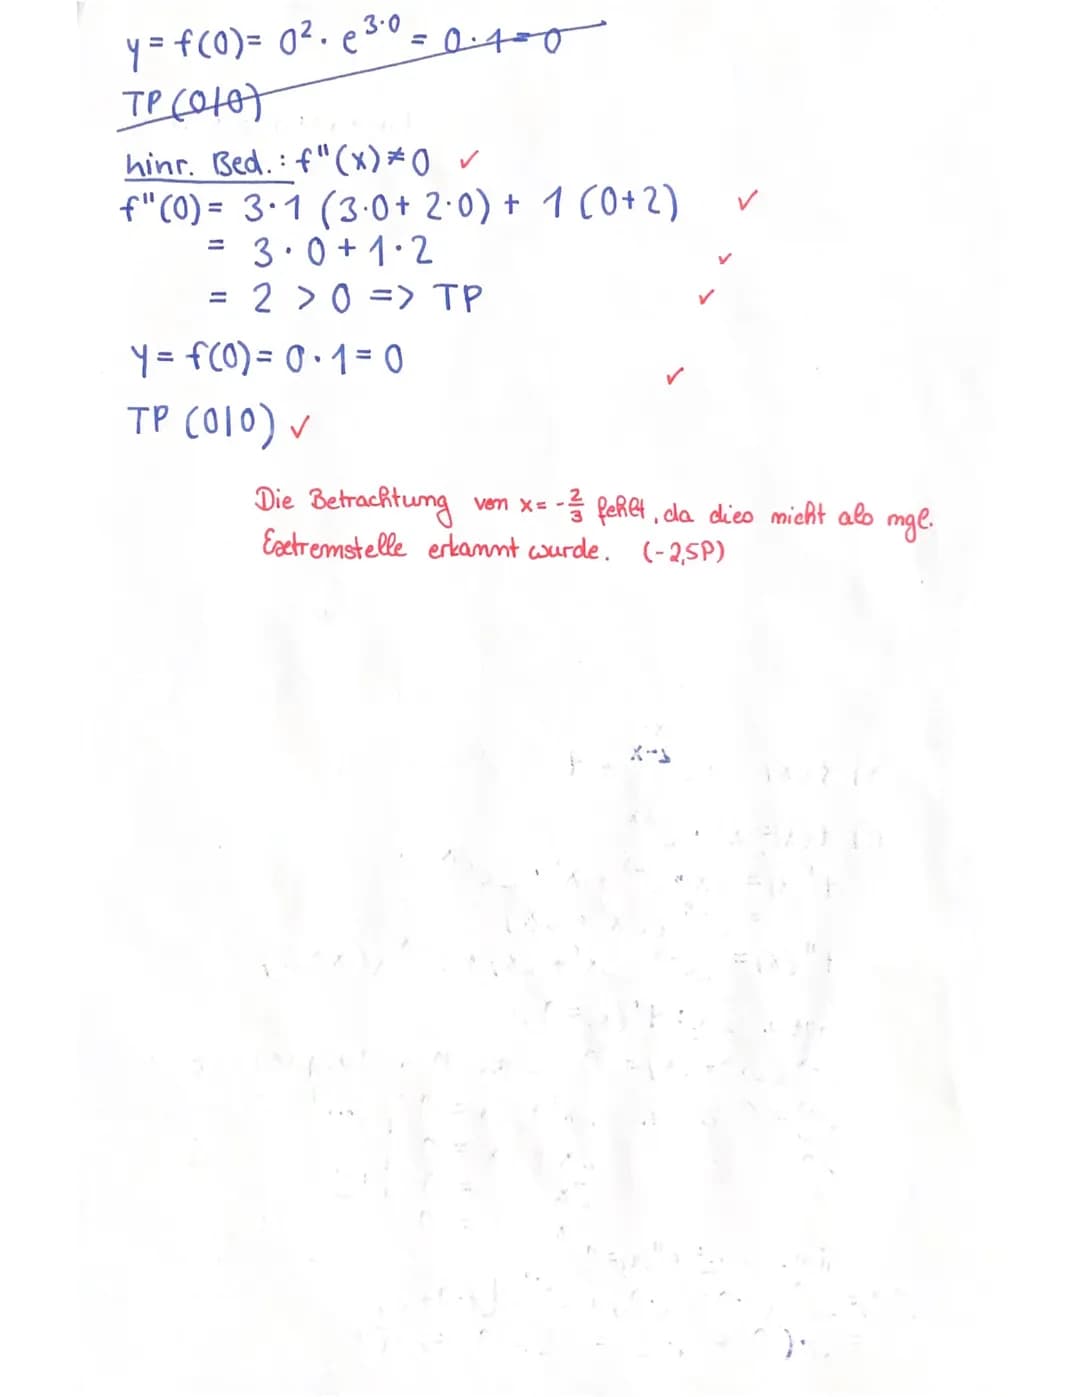 y = f(0) = 0² · e^{3·0} = 0 · 1 = 0
TP (0|0)
hinr. Bed.: f"(x) ≠ 0 ✓
f"(0) = 3 · 1 (3·0 + 2·0) + 1 (0+2) ✓
= 3 · 0 + 1 · 2 ✓
= 2 > 0 => TP ✓
y = f(0) = 0 · 1 = 0 ✓
TP (0|0) ✓
Die Betrachtung von x = -2/3 fehlt, da dies nicht als mgl.
Extremstelle erkannt wurde. (-2,5P)